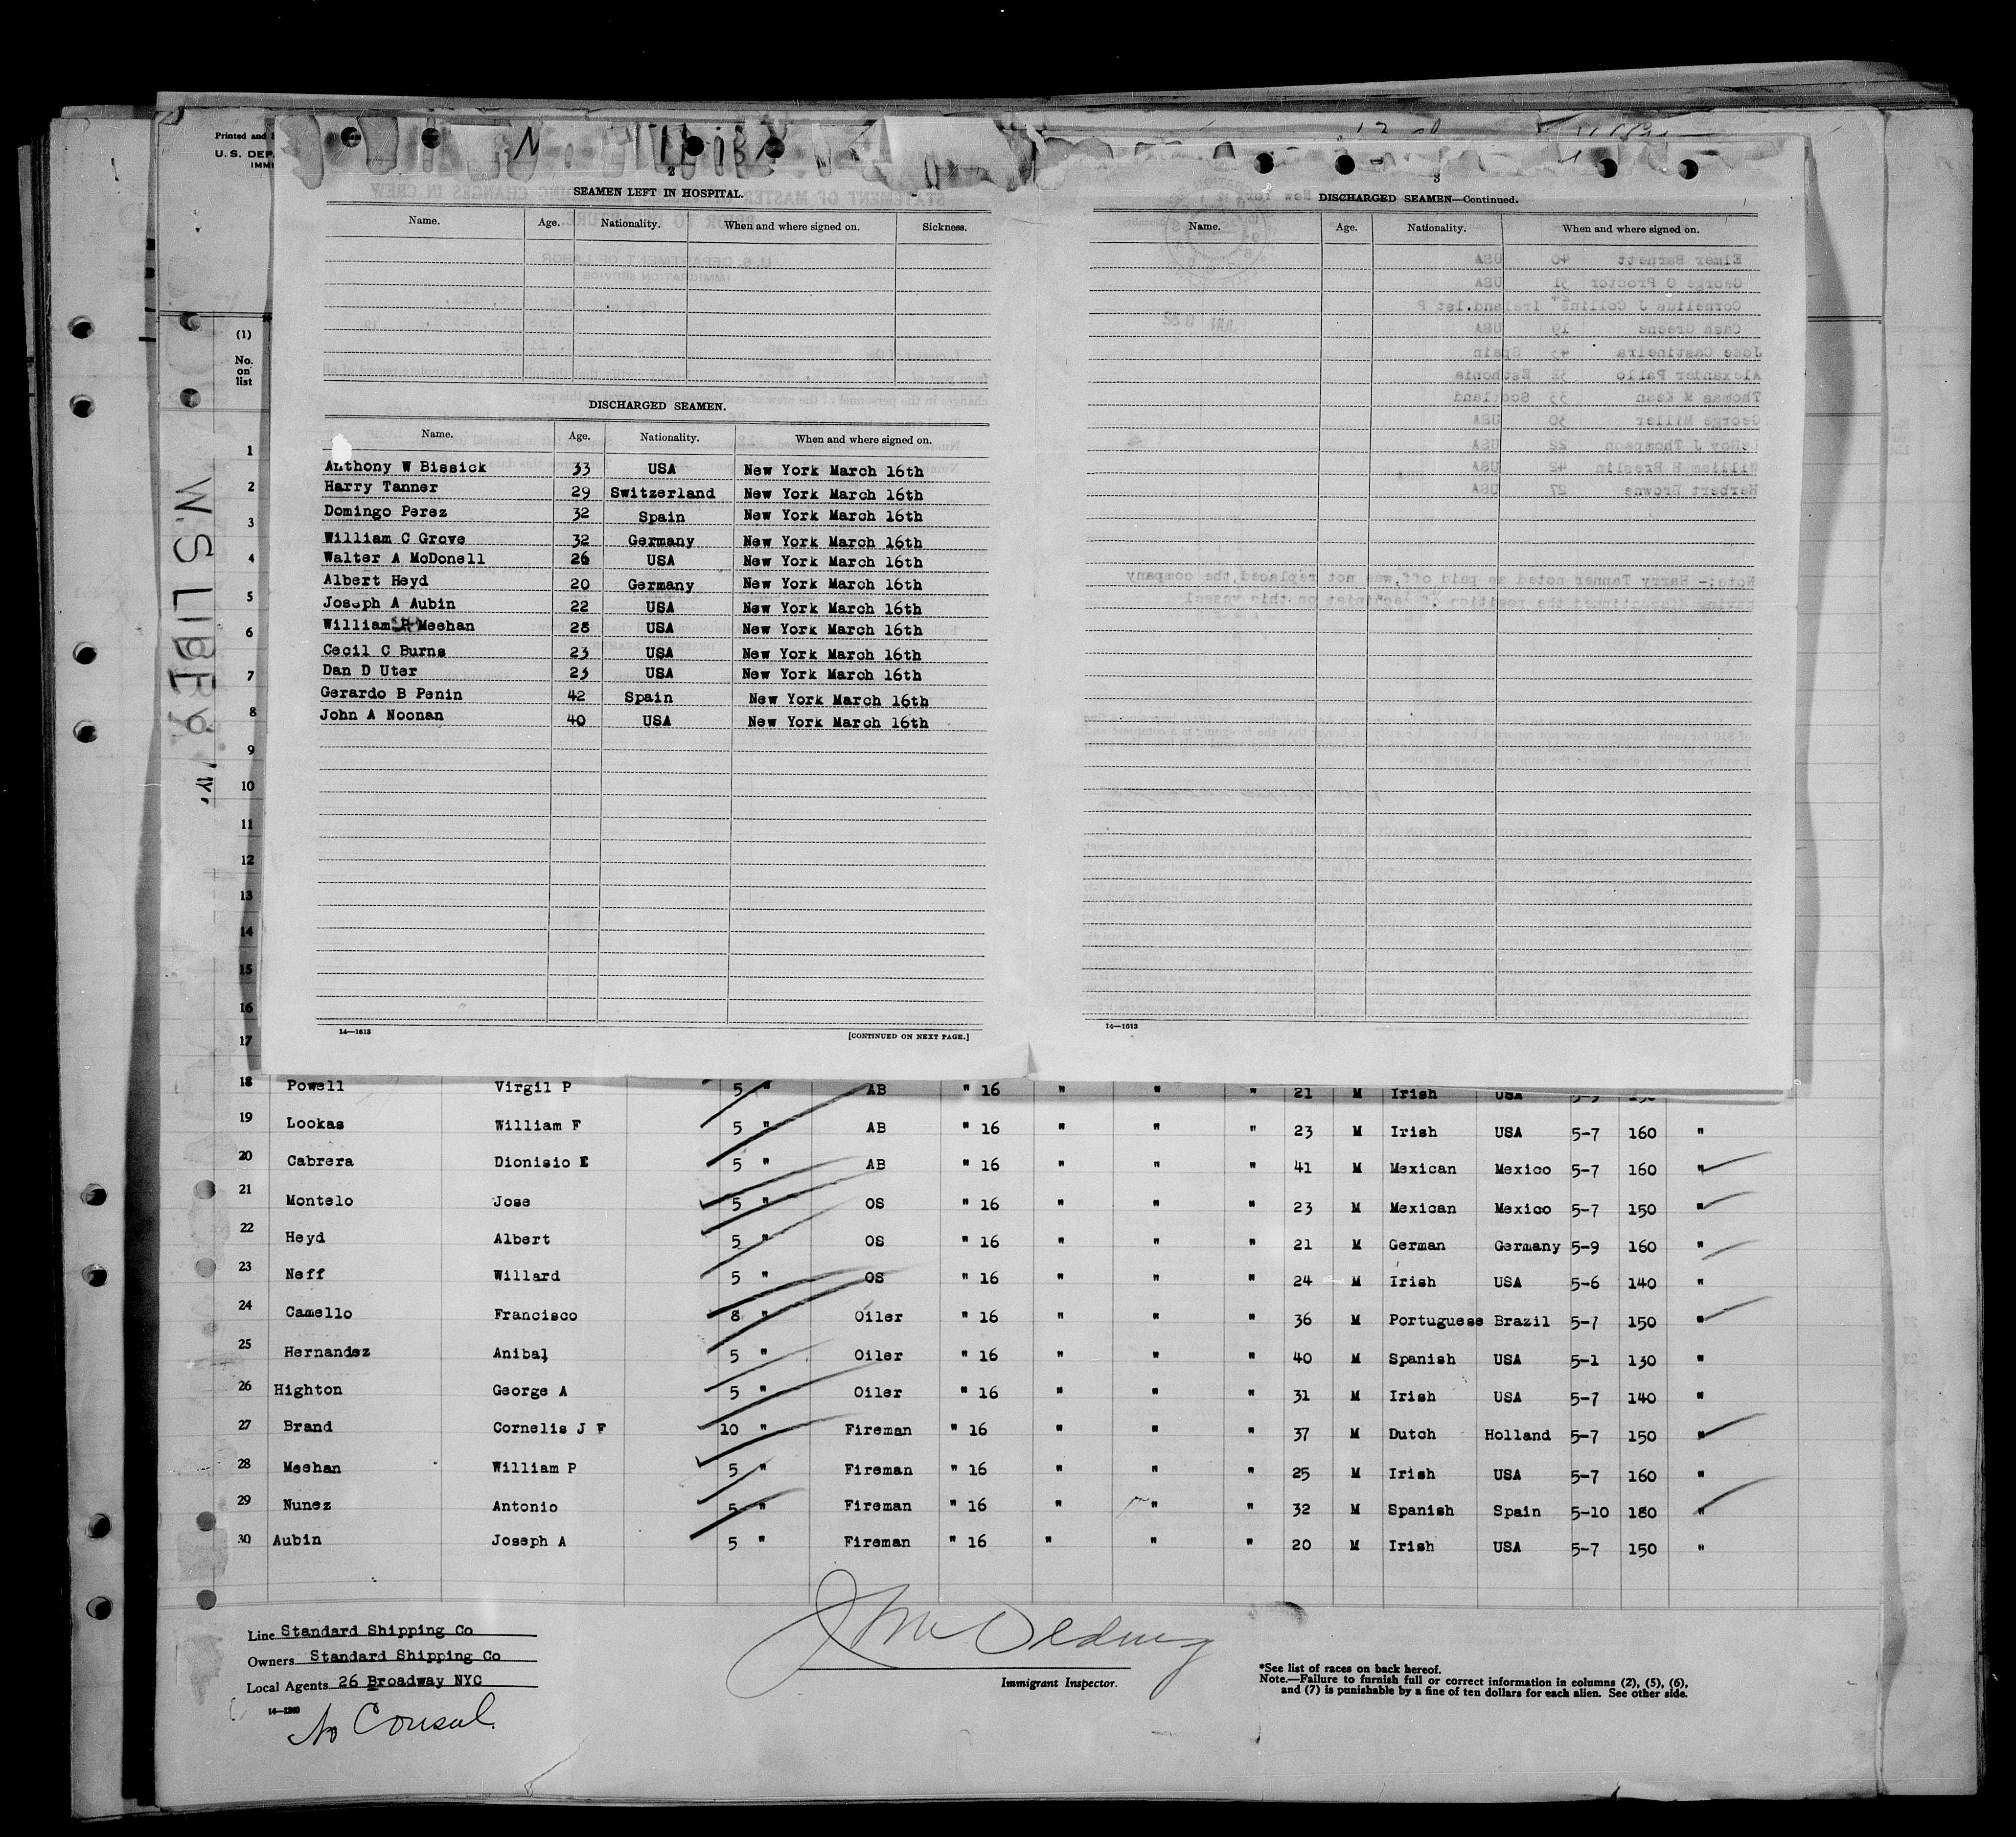 Printed and
U. S. DEP
IMMI
W. S. LIBBY "
(1)
No. on list
2
SEAMEN LEFT IN HOSPITAL.
Name. Age. Nationality. When and where signed on. Sickness.
DISCHARGED SEAMEN.
Name. Age. Nationality. When and where signed on.
Anthony W Bissick 33 USA New York March 16th
Harry Tanner 29 Switzerland New York March 16th
Domingo Perez 32 Spain New York March 16th
William C Grove 32 Germany New York March 16th
Walter A McDonell 26 USA New York March 16th
Albert Heyd 20 Germany New York March 16th
Joseph A Aubin 22 USA New York March 16th
William P Meehan 28 USA New York March 16th
Cecil C Burns 23 USA New York March 16th
Dan D Uter 23 USA New York March 16th
Gerardo B Penin 42 Spain New York March 16th
John A Noonan 40 USA New York March 16th
14—1613 [CONTINUED ON NEXT PAGE.]
3
DISCHARGED SEAMEN—Continued.
Name. Age. Nationality. When and where signed on.
Elmer Barnett 40 USA
George O Proctor 31 USA
Cornelius J Collins 24 Ireland.1st P
Cash Greene 19 USA
Jose Castineira 43 Spain
Alexander Pallo 32 Esthonia
Thomas M Kean 33 Scotland
George Miller 30 USA
LeRoy J Thompson 22 USA
William H Breslin 42 USA
Herbert Browne 27 USA
Note:- Harry Tanner noted as paid off,was not replaced,the company
having discontinued the position of machinist on this vessel
14—1613
1
2
3
4
5
6
7
8
9
10
11
12
13
14
15
16
17
18 Powell Virgil P 5 " AB " 16 " " " 21 M Irish USA 5-9 150
19 Lookas William F 5 " AB " 16 " " " 23 M Irish USA 5-7 160 "
20 Cabrera Dionisio E 5 " AB " 16 " " " 41 M Mexican Mexico 5-7 160 "
21 Montelo Jose 5 " OS " 16 " " " 23 M Mexican Mexico 5-7 150 "
22 Heyd Albert 5 " OS " 16 " " " 21 M German Germany 5-9 160 "
23 Neff Willard 5 " OS " 16 " " " 24 M Irish USA 5-6 140 "
24 Camello Francisco 8 " Oiler " 16 " " " 36 M Portuguese Brazil 5-7 150 "
25 Hernandez Anibal 5 " Oiler " 16 " " " 40 M Spanish USA 5-1 130 "
26 Highton George A 5 " Oiler " 16 " " " 31 M Irish USA 5-7 140 "
27 Brand Cornelis J F 10 " Fireman " 16 " " " 37 M Dutch Holland 5-7 150 "
28 Meehan William P 5 " Fireman " 16 " " " 25 M Irish USA 5-7 160 "
29 Nunez Antonio 5 " Fireman " 16 " " " 32 M Spanish Spain 5-10 180 "
30 Aubin Joseph A 5 " Fireman " 16 " " " 20 M Irish USA 5-7 150 "
Line Standard Shipping Co
Owners Standard Shipping Co
Local Agents 26 Broadway NYC
14—1240
No Consul.
Immigrant Inspector.
*See list of races on back hereof.
Note.—Failure to furnish full or correct information in columns (2), (5), (6),
and (7) is punishable by a fine of ten dollars for each alien. See other side.